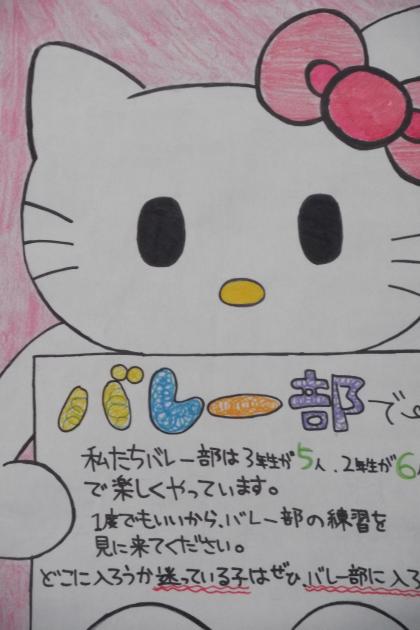 バレー部で
私たちバレー部は3年生が5人、2年生が6
で楽しくやっています。
1度でもいいから、バレー部の練習を
見に来てください。
どこに入ろうか迷っている子はぜひ、バレー部に入ろ